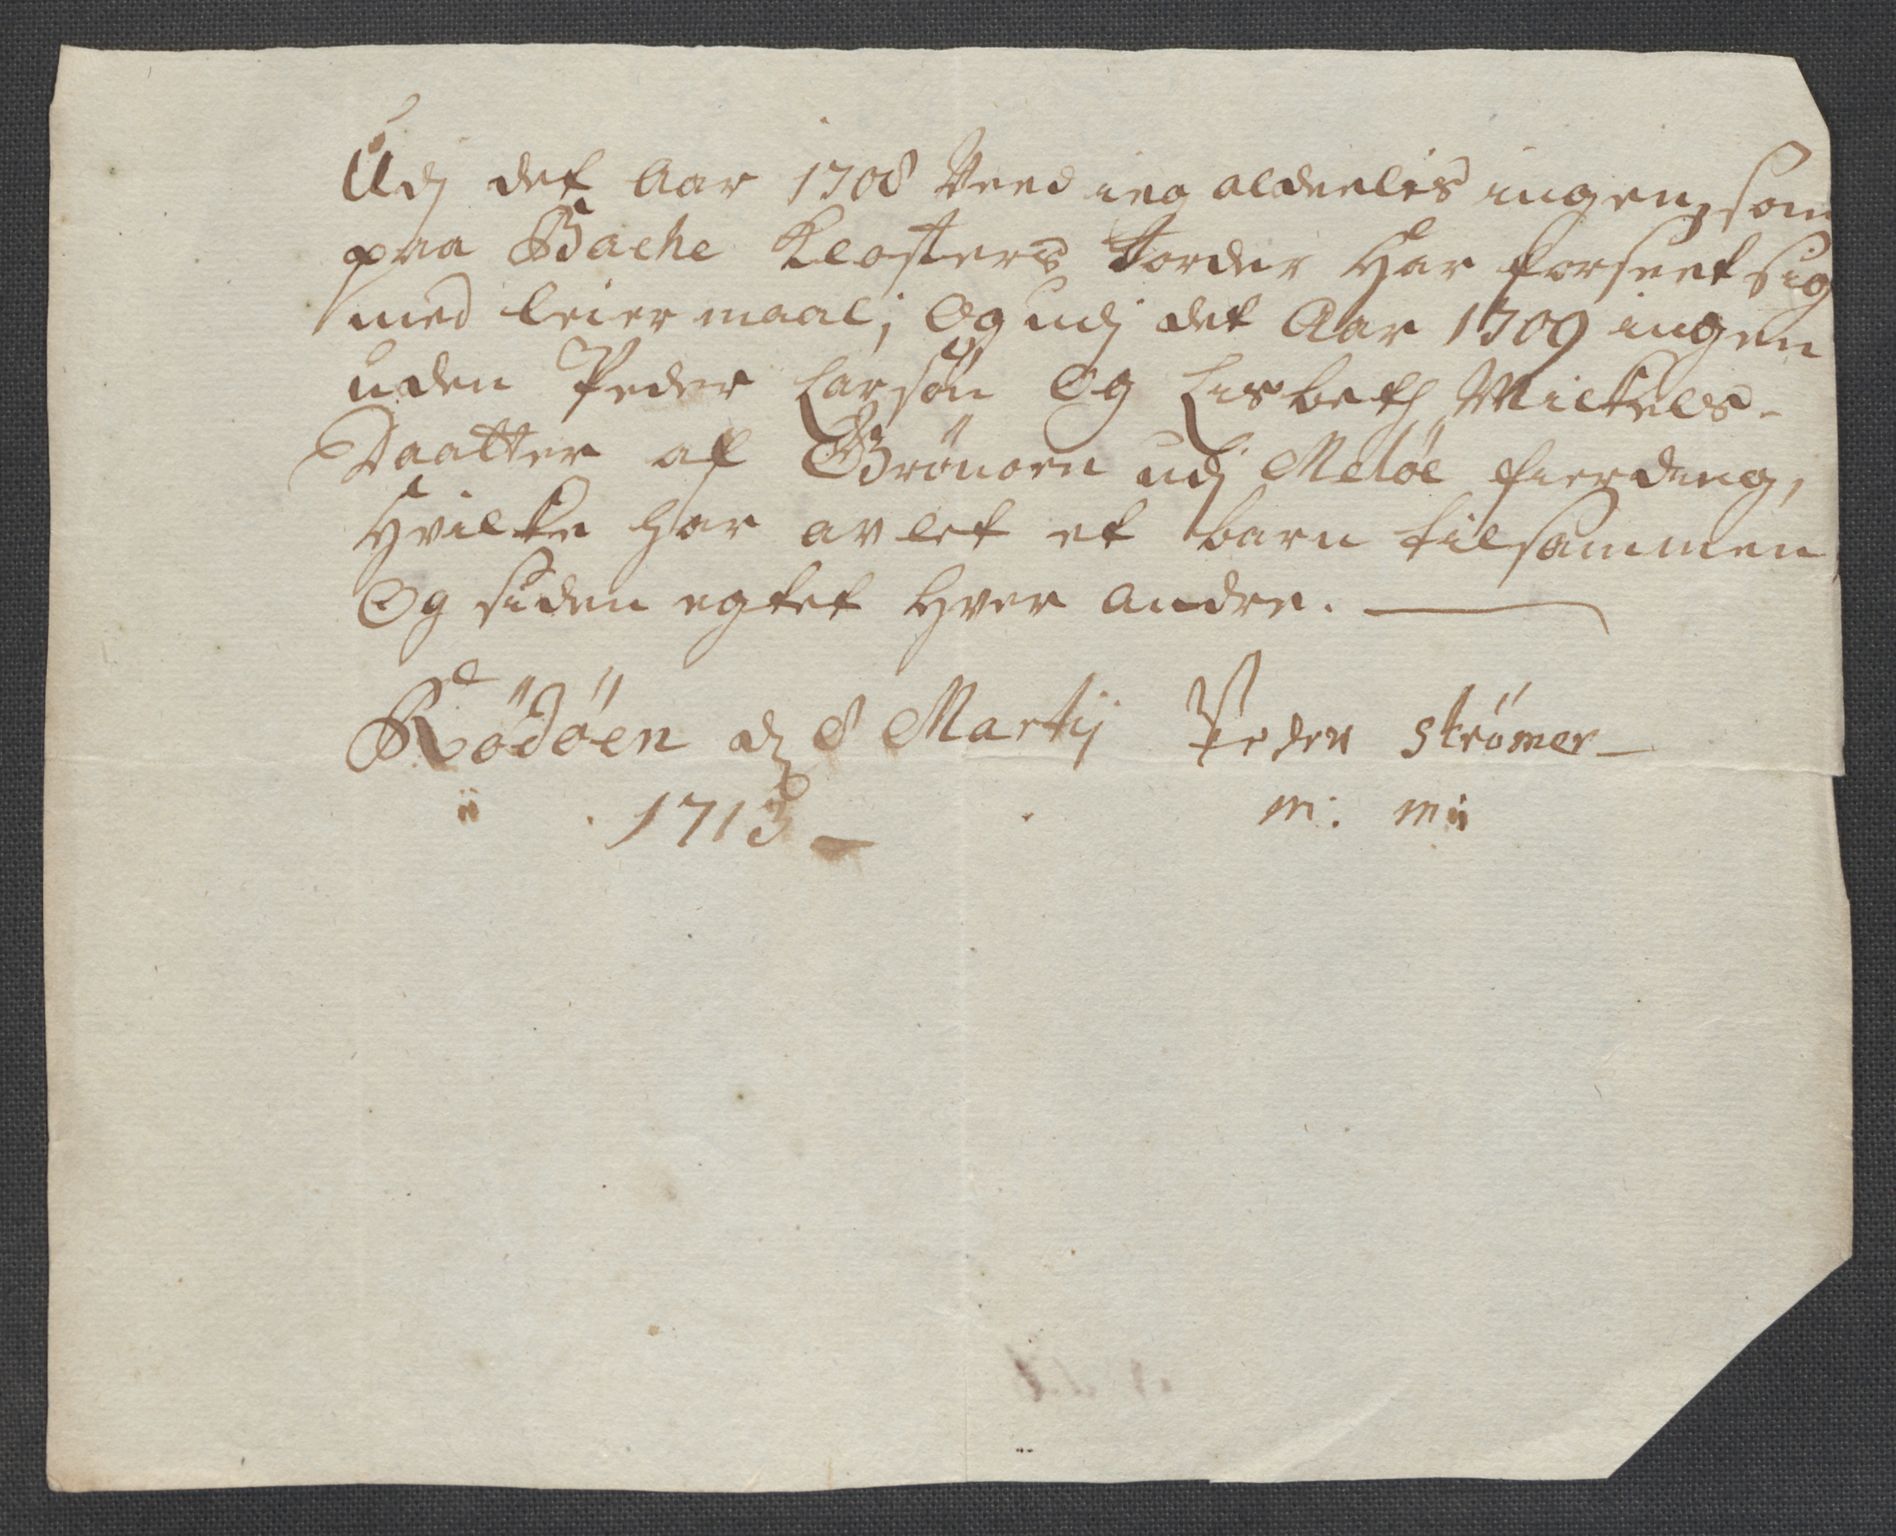 Udj det Aar 1708 Veed ieg aldeelis ingen, som
paa Bache Klosters Jorder Har forseet sig
med leiermaal; Og udj det Aar 1709 ingen
uden Peder Larsøn Og Lisbeth Mickels-
Daatter af Grönoen udj Meløe fierding,
Hvilke har avlet et barn tilsammen
Og siden egtet Hver andre.
Rödöen d 8 Martij Peder Strömer
1713 m: mü